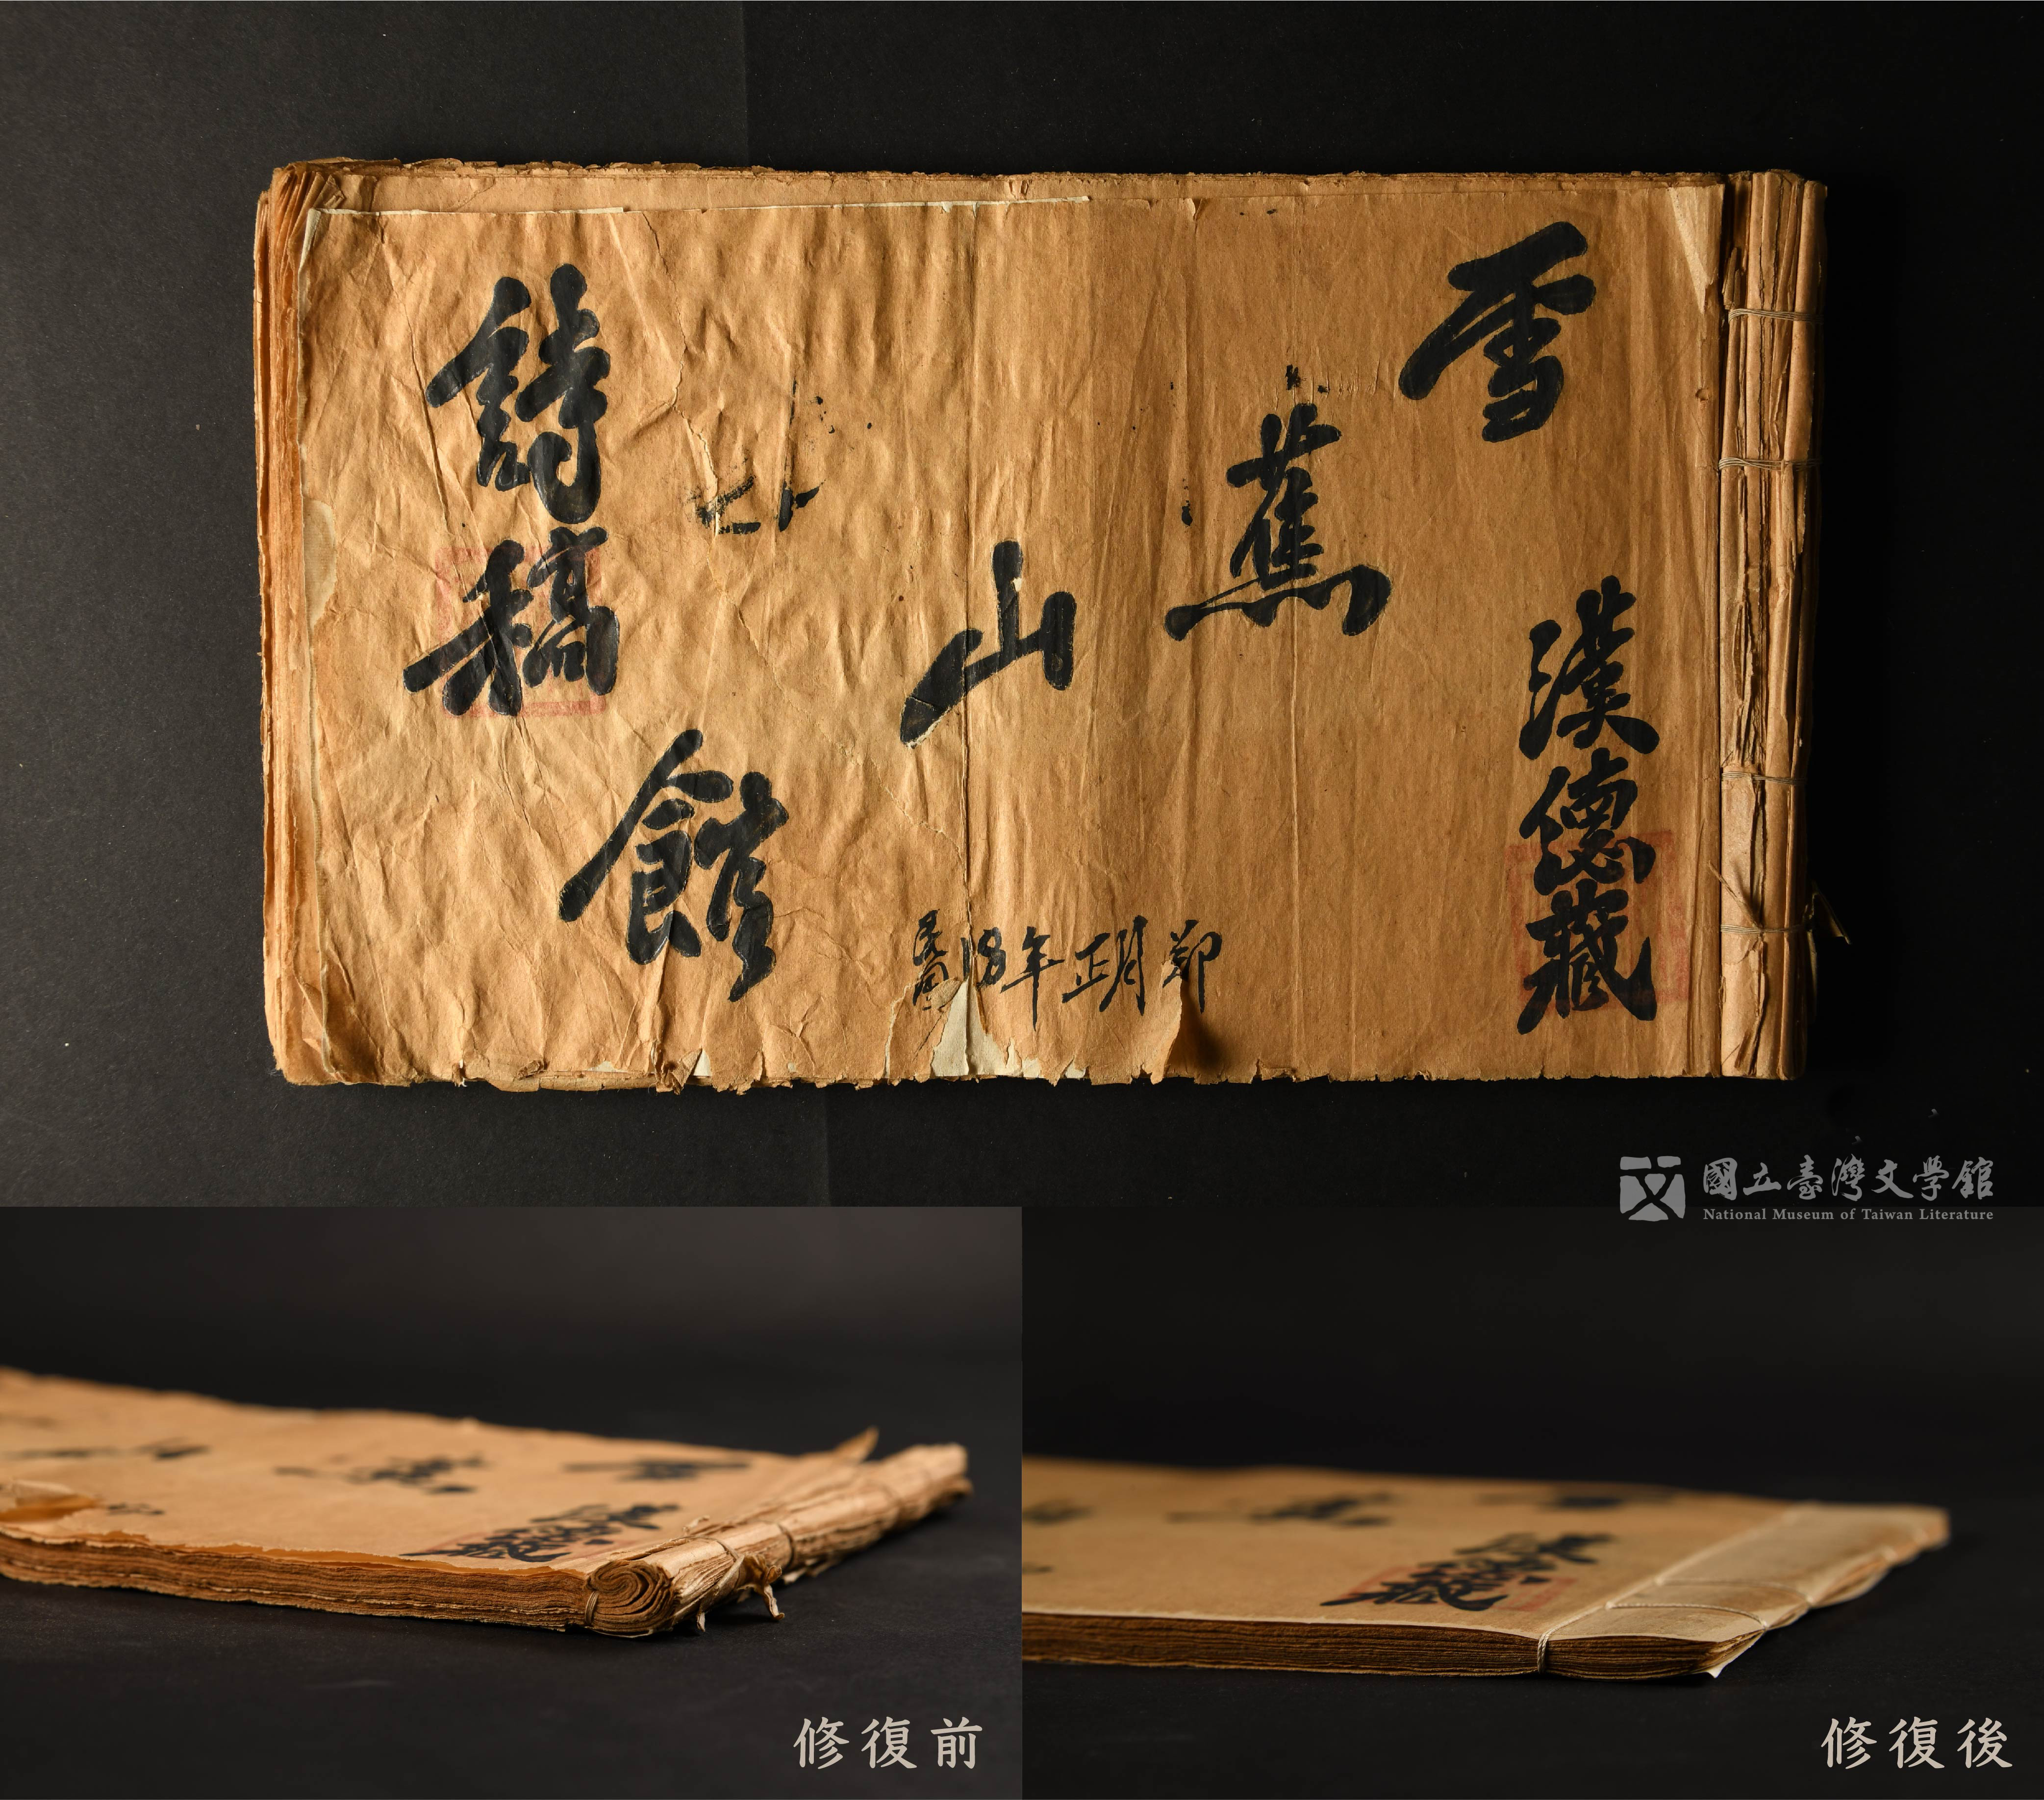 雪蕉山館
詩稿
漢德藏
民國18年正月鄭
國立臺灣文學館
National Museum of Taiwan Literature
修復前
修復後